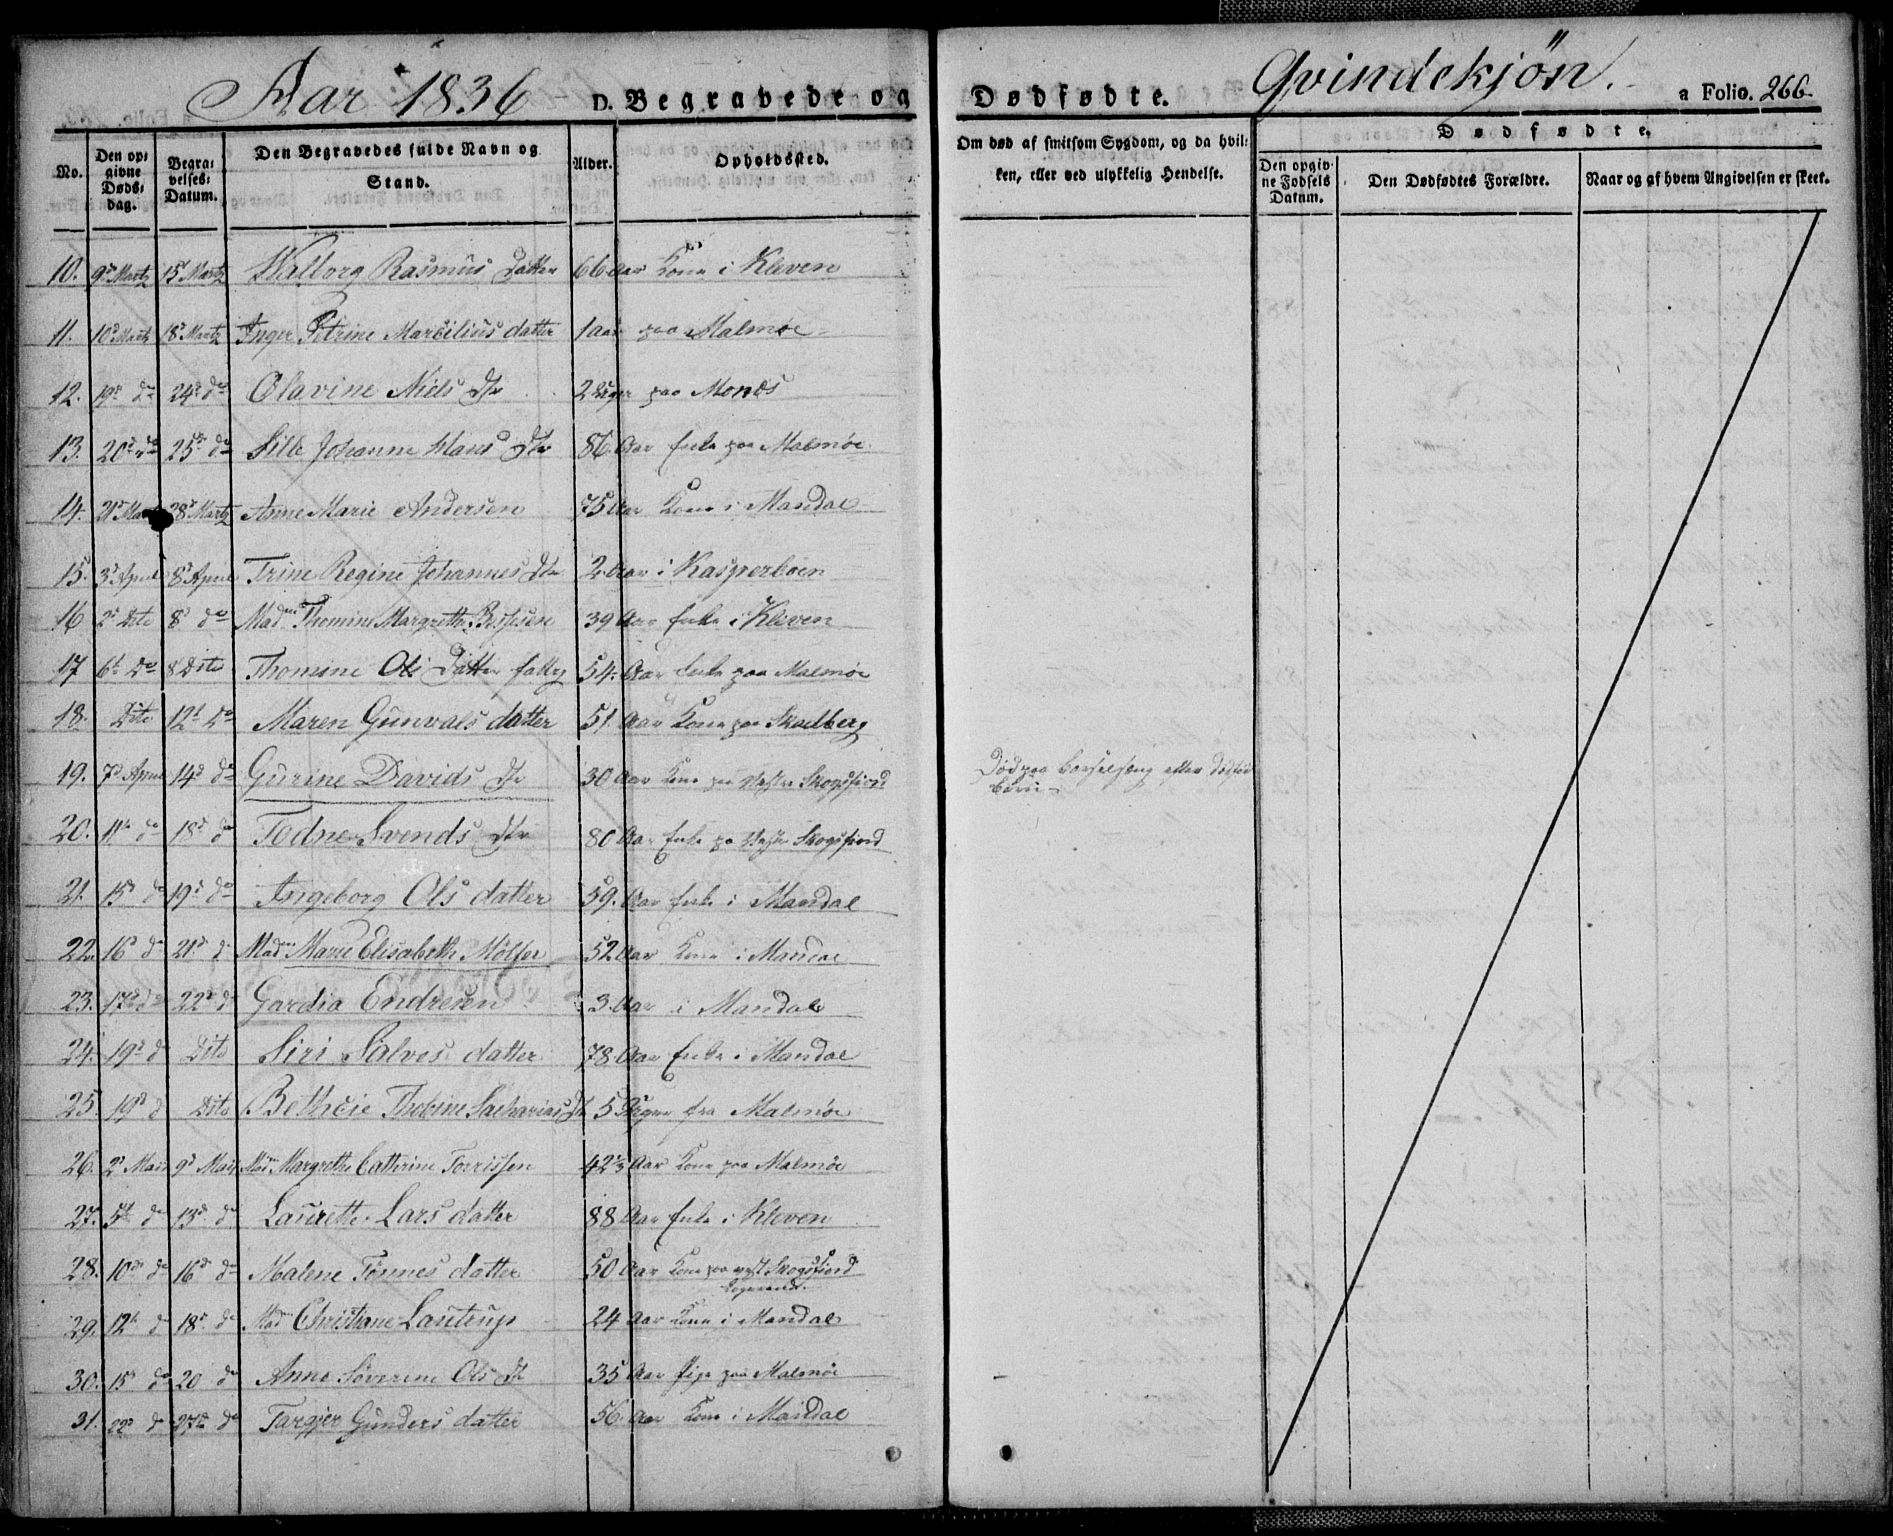 Aar 1836 D. Begravede og Dødfødte. Qvindekjön. a Folio. 266.
No. Den opgivne Dødsdag. Begravelses-Datum. Den Begravedes fulde Navn og Stand. Alder. Opholdssted. Om død af smitsom Sygdom, og da hvilken, eller ved ulykkelig Hendelse. Dødfødte. Den opgivne Fødsels Datum. Den Dødfødtes Forældre. Naar og af hvem Angivelsen er skeet.
10. 9d Martz 15d Martz Walborg Rasmus Datter 66 Aar Kone i Kleven
11. 10d Martz 18d Martz Inger Petrine Marcilius datter 1 aar paa Malmøe
12. 19d do 24d do Olavine Niels Dtr 2 Uger paa Monæs
13. 20d do 25d do Sille Johanne Dtr 86 Aar Enke paa Malmøe
14. 21d Martz 28d Martz Anne Marie Andersen 75 Aar Kone i Mandal
15. 3d April 8d April Trine Regine Johannes Dtr 2 Aar i Kasperboen
16 2d Dito 8d do Madm Thomine Margrethe 39 Aar Enke i Kleven
17 6t Do 8 Dito Thomine Ols Datter fattig 54. Aar Enke paa Malmøe
18. Dito 12t Do Maren Gunvals datter 51 Aar Kone paa Skadberg
19. 7d April 14d do Gurine Davids Dtr 30 Aar Kone paa Vestre Skogsfiord Død paa Barselseng efter dødfød
Barn
20. 11t do 18d do Todne Svends Dtr 80 Aar Enke pa Vestr Skogsfiord
21. 15d do 19d do Ingeborg Ols datter 59. Aar Enke i Mandal
22. 16d do 21d d Madm Marie Elisabeth 52 Aar Kone i Mandal
23. 17d do 22d d Gardia Endresen 3 Aar i Mandal
24. 19d d Dito Siri Salves datter 78 Aar Enke i Mandal
25. 19d d Dito Thobine Sacharias Dtr 5 Uger fra Malmøe
26. 2d Maii 9d Maii Madm Margrethe Cathrine Torrissen 42 Aar Kone paa Malmøe
27. 5t d 13d d Laurethe Lars datter 88 Aar Enke i Kleven
28. 10d do 16d do Malene Tønnes datter 50 Aar Kone paa vest Skogsfiord
29. 12t d 18d d Mad Christiane Lautrup 24 Aar Kone i Mandal
30. 15d do 20 do Anne Severine Ols Dr 35 Aar Pige paa Malmøe
31. 22d d 27d do Targjer Gunders datter 56 Aar Kone i Mandal